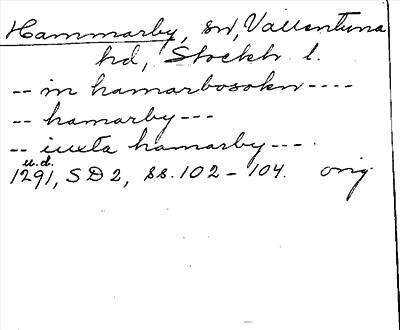 Hammarby, sn, Vallentuna
hd, Stockh. l.
-- in hamarbosokn ----
-- hamarby ---
-- iuxta hamarby ---.
u.d.
1291, SD 2, ss. 102-104. orig